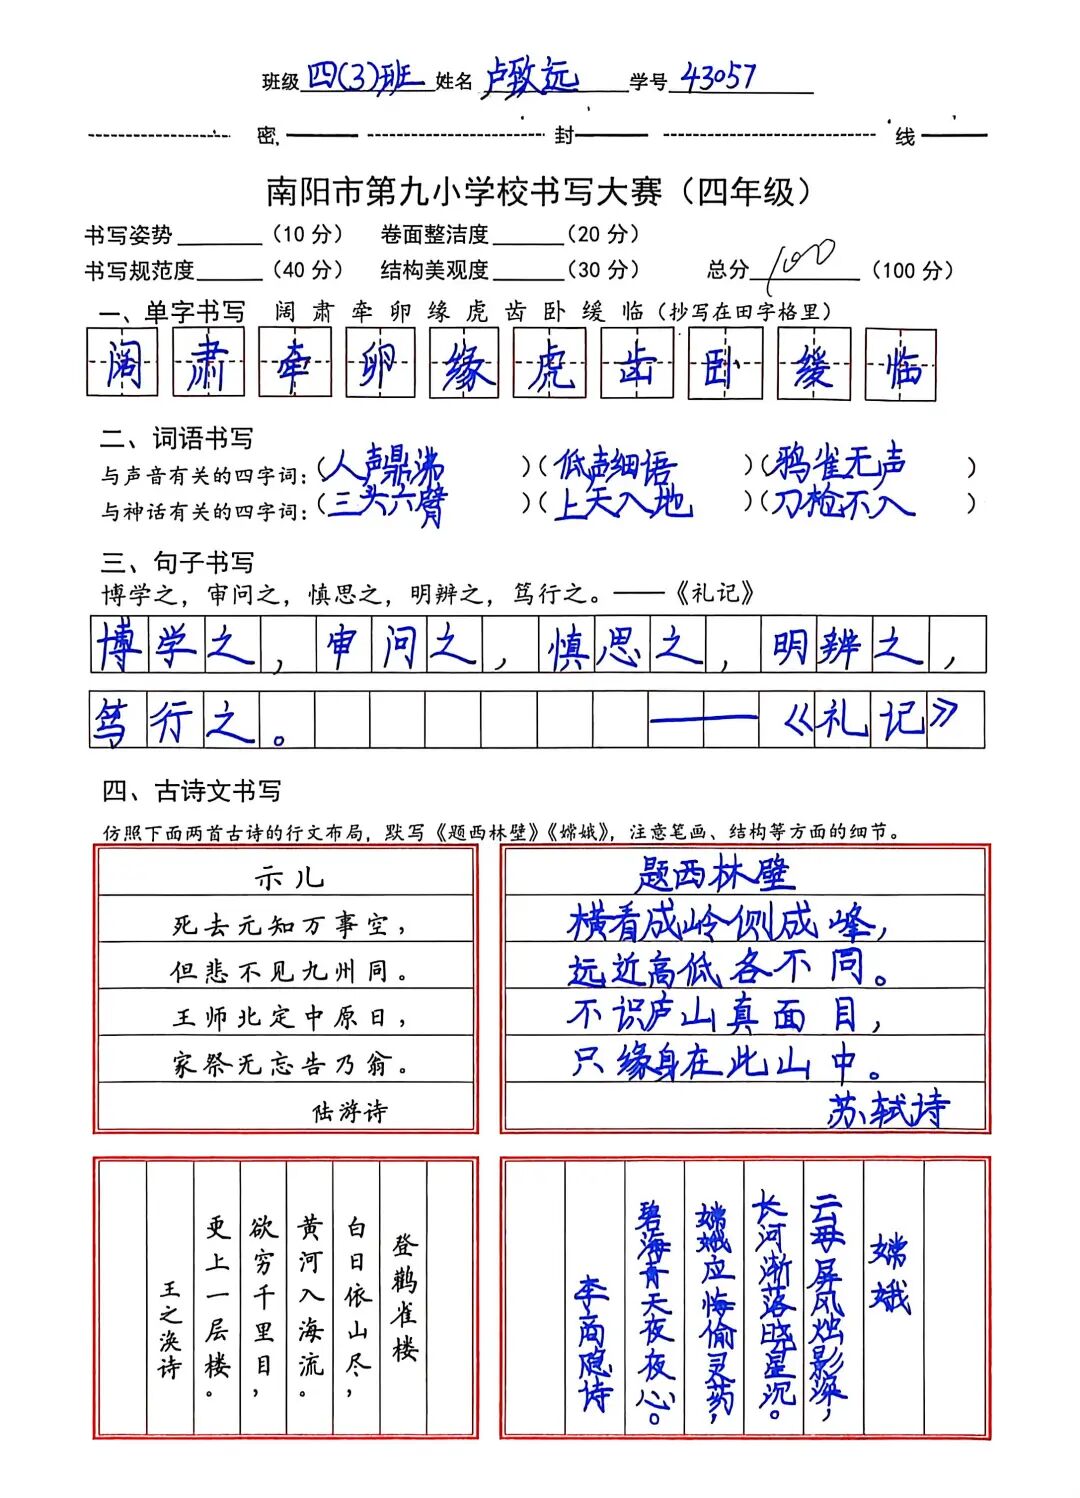 班级四(3)班姓名卢致远学号43057
密封线
南阳市第九小学校书写大赛（四年级）
书写姿势（10分） 卷面整洁度（20分）
书写规范度（40分） 结构美观度（30分） 总分100（100分）
一、单字书写 阔 肃 牵 卵 缘 虎 齿 卧 缓 临（抄写在田字格里）
阔 肃 牵 卵 缘 虎 齿 卧 缓 临
二、词语书写
与声音有关的四字词：（人声鼎沸）（低声细语）（鸦雀无声）
与神话有关的四字词：（三头六臂）（上天入地）（刀枪不入）
三、句子书写
博学之，审问之，慎思之，明辨之，笃行之。——《礼记》
博学之，审问之，慎思之，明辨之，
笃行之。——《礼记》
四、古诗文书写
仿照下面两首古诗的行文布局，默写《题西林壁》《嫦娥》，注意笔画、结构等方面的细节。
示儿
死去元知万事空，
但悲不见九州同。
王师北定中原日，
家祭无忘告乃翁。
陆游诗
题西林壁
横看成岭侧成峰，
远近高低各不同。
不识庐山真面目，
只缘身在此山中。
苏轼诗
登鹳雀楼
白日依山尽，
黄河入海流。
欲穷千里目，
更上一层楼。
王之涣诗
嫦娥
云母屏风烛影深，
长河渐落晓星沉。
嫦娥应悔偷灵药，
碧海青天夜夜心。
李商隐诗